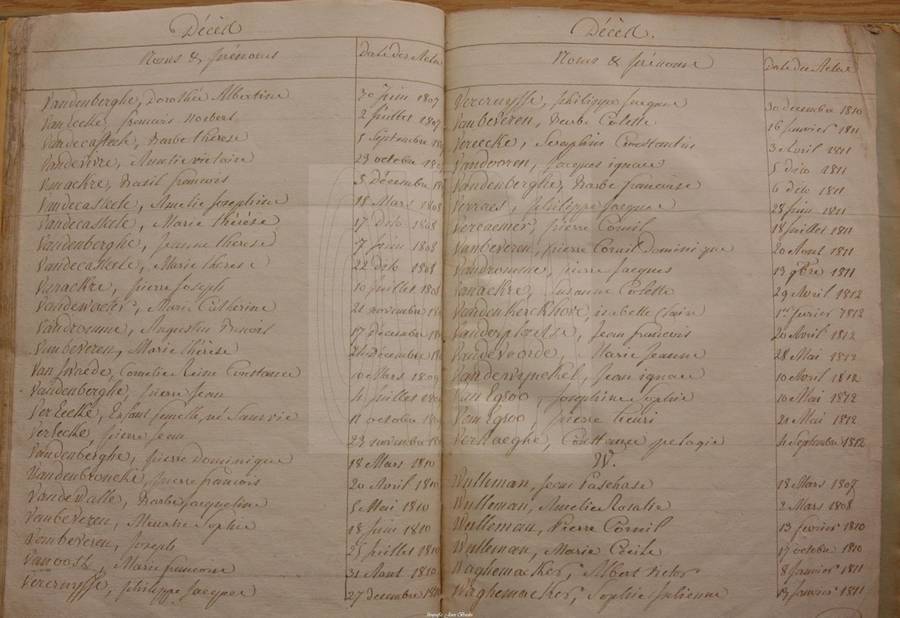 Décès
Noms & prénoms
Date des Actes
Vandenberghe, Dorothée Albertine 30 Juin 1807
Vandecke, francois Norbert 2 Juillet 1807
Vandecasteele, Barbe thérèse 5 Septembre
Vandevivre, Amelie victoire 29 octobre
Vanackre, Basil francois 3 Décembre
Vandecasteele, Amelie Josephine 18 Mars 1808
Vandecasteele, Marie thérèse 17 dito 1808
Vandenberghe, jeanne therese 7 Juin 1808
Vandecasteele, Marie therese 22 dito 1808
Vanackre, pierre Joseph 10 Juillet 1808
Vandewacker, Marie Catherine 21 novembre
Vandromme, Augustin Benoit 17 Decembre
Vanbeveren, Marie thérèse 26 Décembre
Van Cornelie Reine Constance 10 Mars 1809
Vandenberghe, pierre Jean 4 Juillet
VerEecke, Enfant femelle né sans vie 11 octobre
VerEecke, pierre Jean 23 novembre
Vandenberghe, pierre Dominique 18 Mars 1810
Vandenbroucke, pierre francois 20 Avril 1810
Vandewalle, Barbe Jacqueline 5 Mai 1810
Vanbeveren, Sophie 18 Juin 1810
Vanbeveren, Joseph 25 Juillet 1810
Vanoost, Marie francoise 31 Aout 1810
Vercruysse, philippe Jacques 27 decembre
Décès.
Noms & prénoms
Date des Actes
Vercruysse, philippe Jacques 30 decembre 1810
Vanbeveren, Barbe Colette 16 Janvier 1811
Vereecke, Seraphin Constantin 3 Avril 1811
Vandooren, Jacques ignace 5 dito 1811
Vandenberghe, Barbe francoise 6 dito 1811
Verraes, philippe Jacques 28 Juin 1811
Vercaemer, pierre Cornil 18 Juillet 1811
Vanbeveren, pierre Cornil Dominique 20 Aout 1811
Vandromme, pierre Jacques 13 9bre 1811
Vanackre, Suzanne Colette 29 Avril 1812
Vandenkerckhove, isabelle Claire 1er fevrier 1812
Vanderplaetse, Jean francois 20 Avril 1812
VandeVoorde, Marie Jeanne 28 Mai 1812
Vandewynckel, Jean ignace 10 Avril 1812
Van Egroo, Josephine Sophie 10 Mai 1812
Van Egroo, pierre henri 21 Mai 1812
Verhaeghe, Constance pelagie 4 Septembre 1812
W.
Wulleman, Jean Paschase 18 Mars
Wulleman, Amelie Rosalie 2 Mars 1808
Wulleman, Pierre Cornil 13 fevrier 1810
Wulleman, Marie Cecile 17 octobre 1810
Waghemacker, Albert Victor 8 Janvier 1811
Waghemacker, Sophie Julienne 19 Janvier 1811